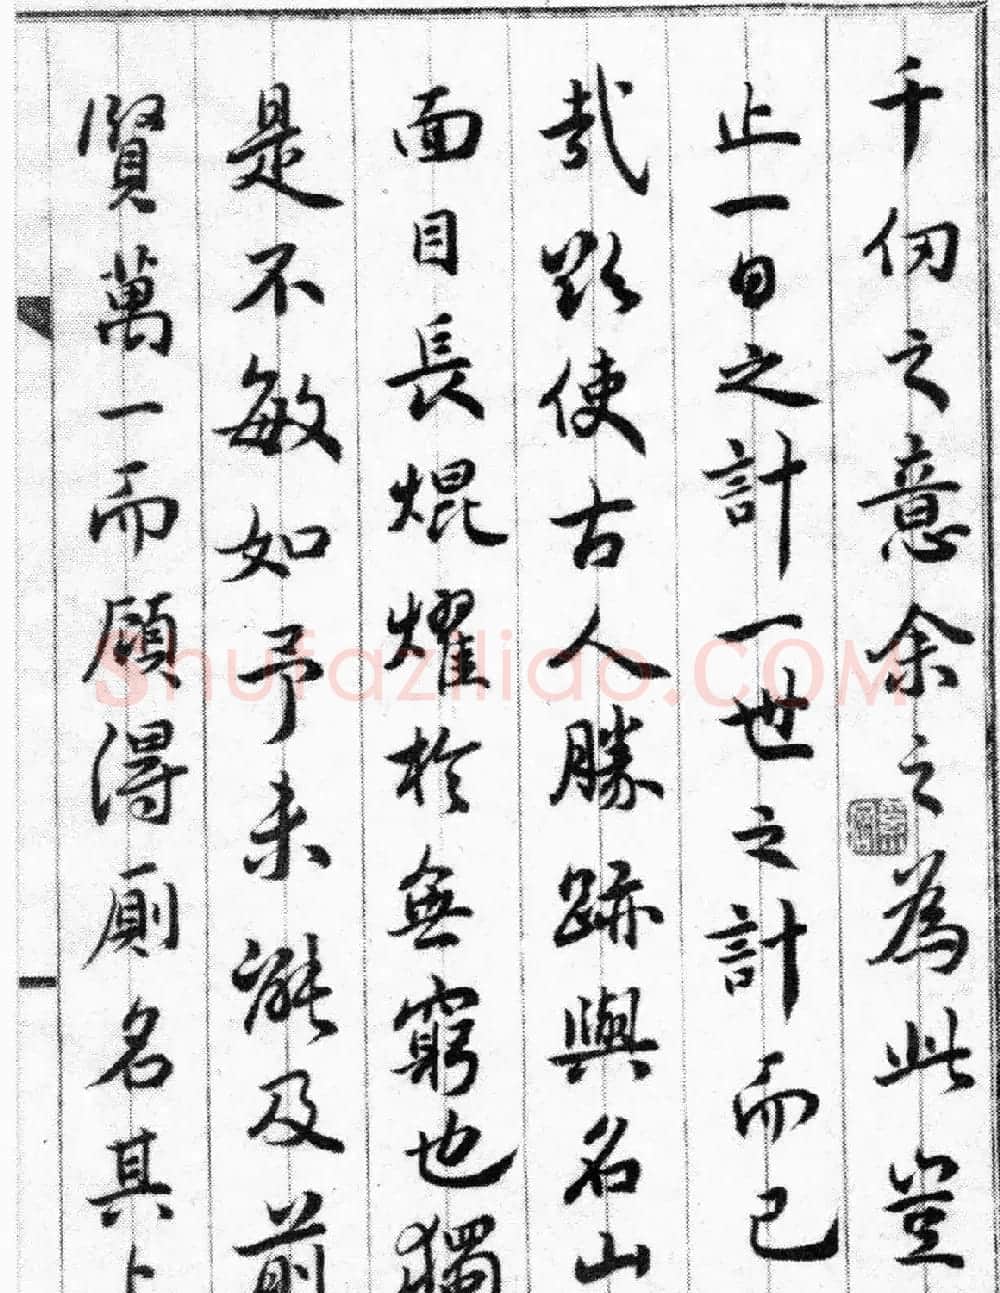 千仞之意余之為此豈
止一日之計一世之計而已
哉欲使古人勝跡與名山
面目長焜耀於無窮也獨
是不敏如予未能及前
賢萬一而顧得厠名其
Shufaziliao.COM